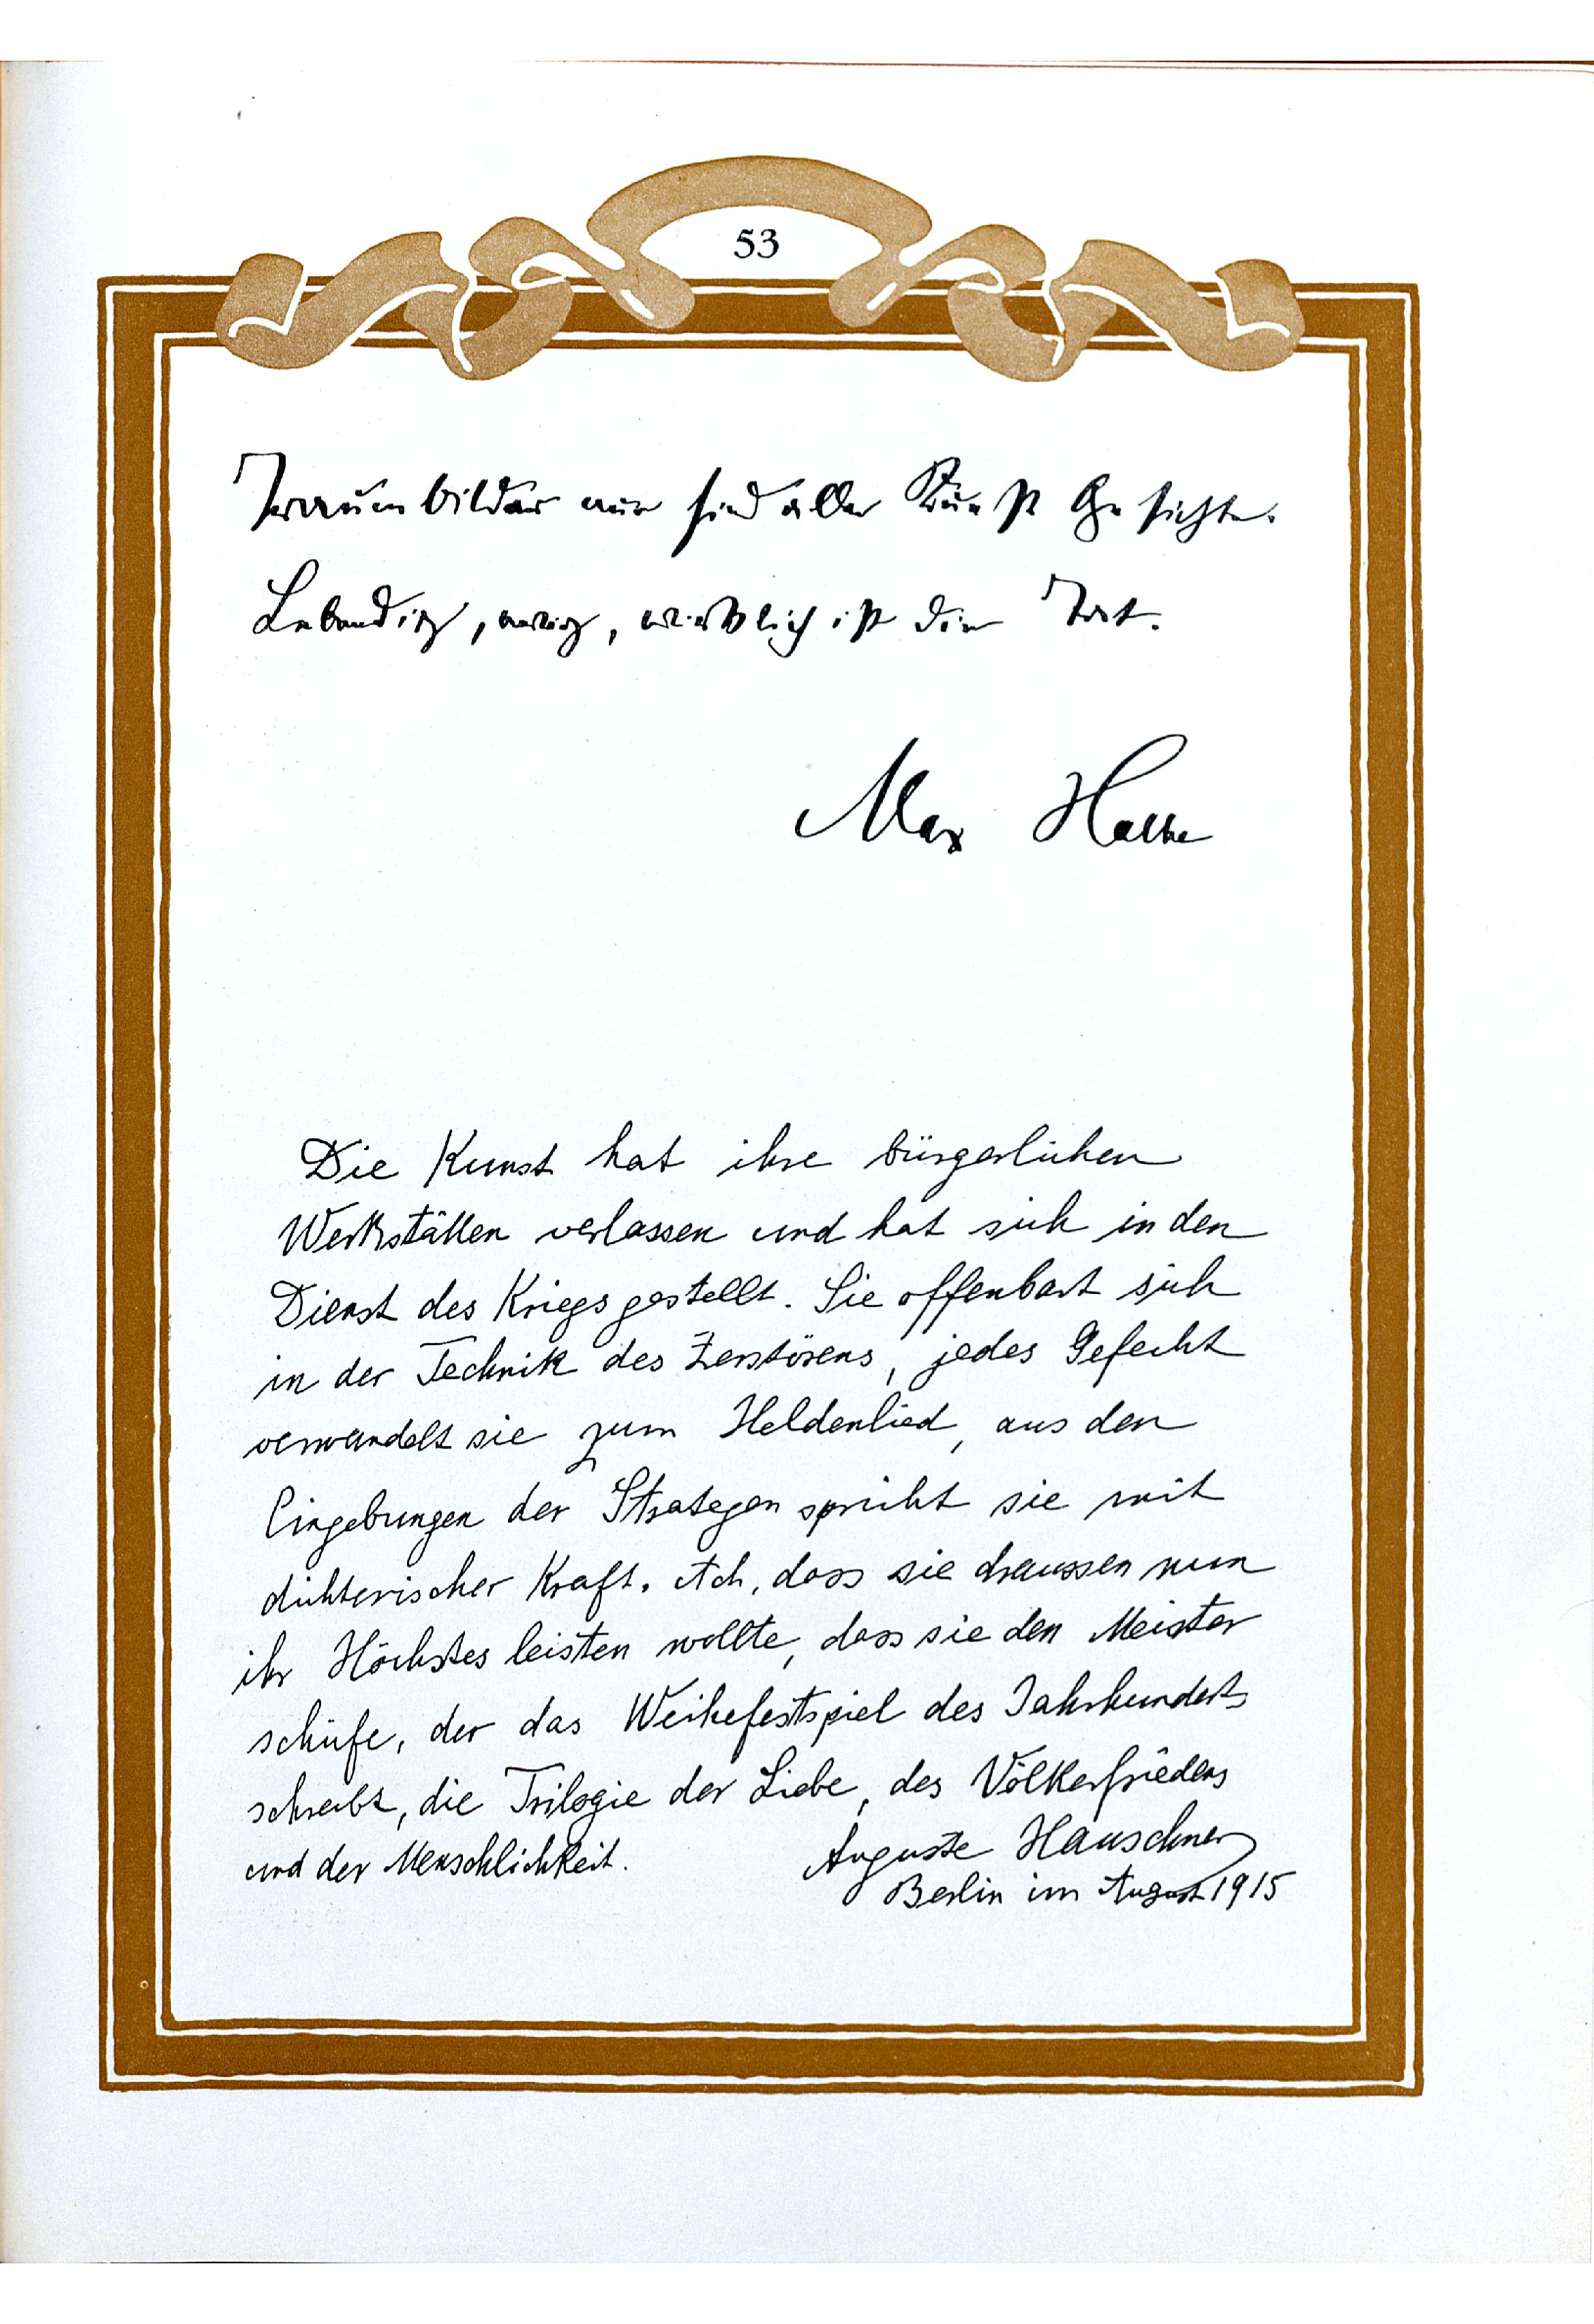 53
Traumbilder nur sind aller Kunst Gesichte.
Lebendig, ewig, wirklich ist die Tat.
Max Halbe
Die Kunst hat ihre bürgerlichen
Werkstätten verlassen und hat sich in den
Dienst des Kriegs gestellt. Sie offenbart sich
in der Technik des Zerstörens, jedes Gefecht
verwandelt sie zum Heldenlied, aus den
Eingebungen der Strategen spricht sie mit
dichterischer Kraft. Ach, dass sie draussen nun
ihr Höchstes leisten wollte, dass sie den Meister
schüfe, der das Weihefestspiel des Jahrhunderts
schreibt, die Trilogie der Liebe, des Völkerfriedens
und der Menschlichkeit.
Auguste Hauschner
Berlin im August 1915